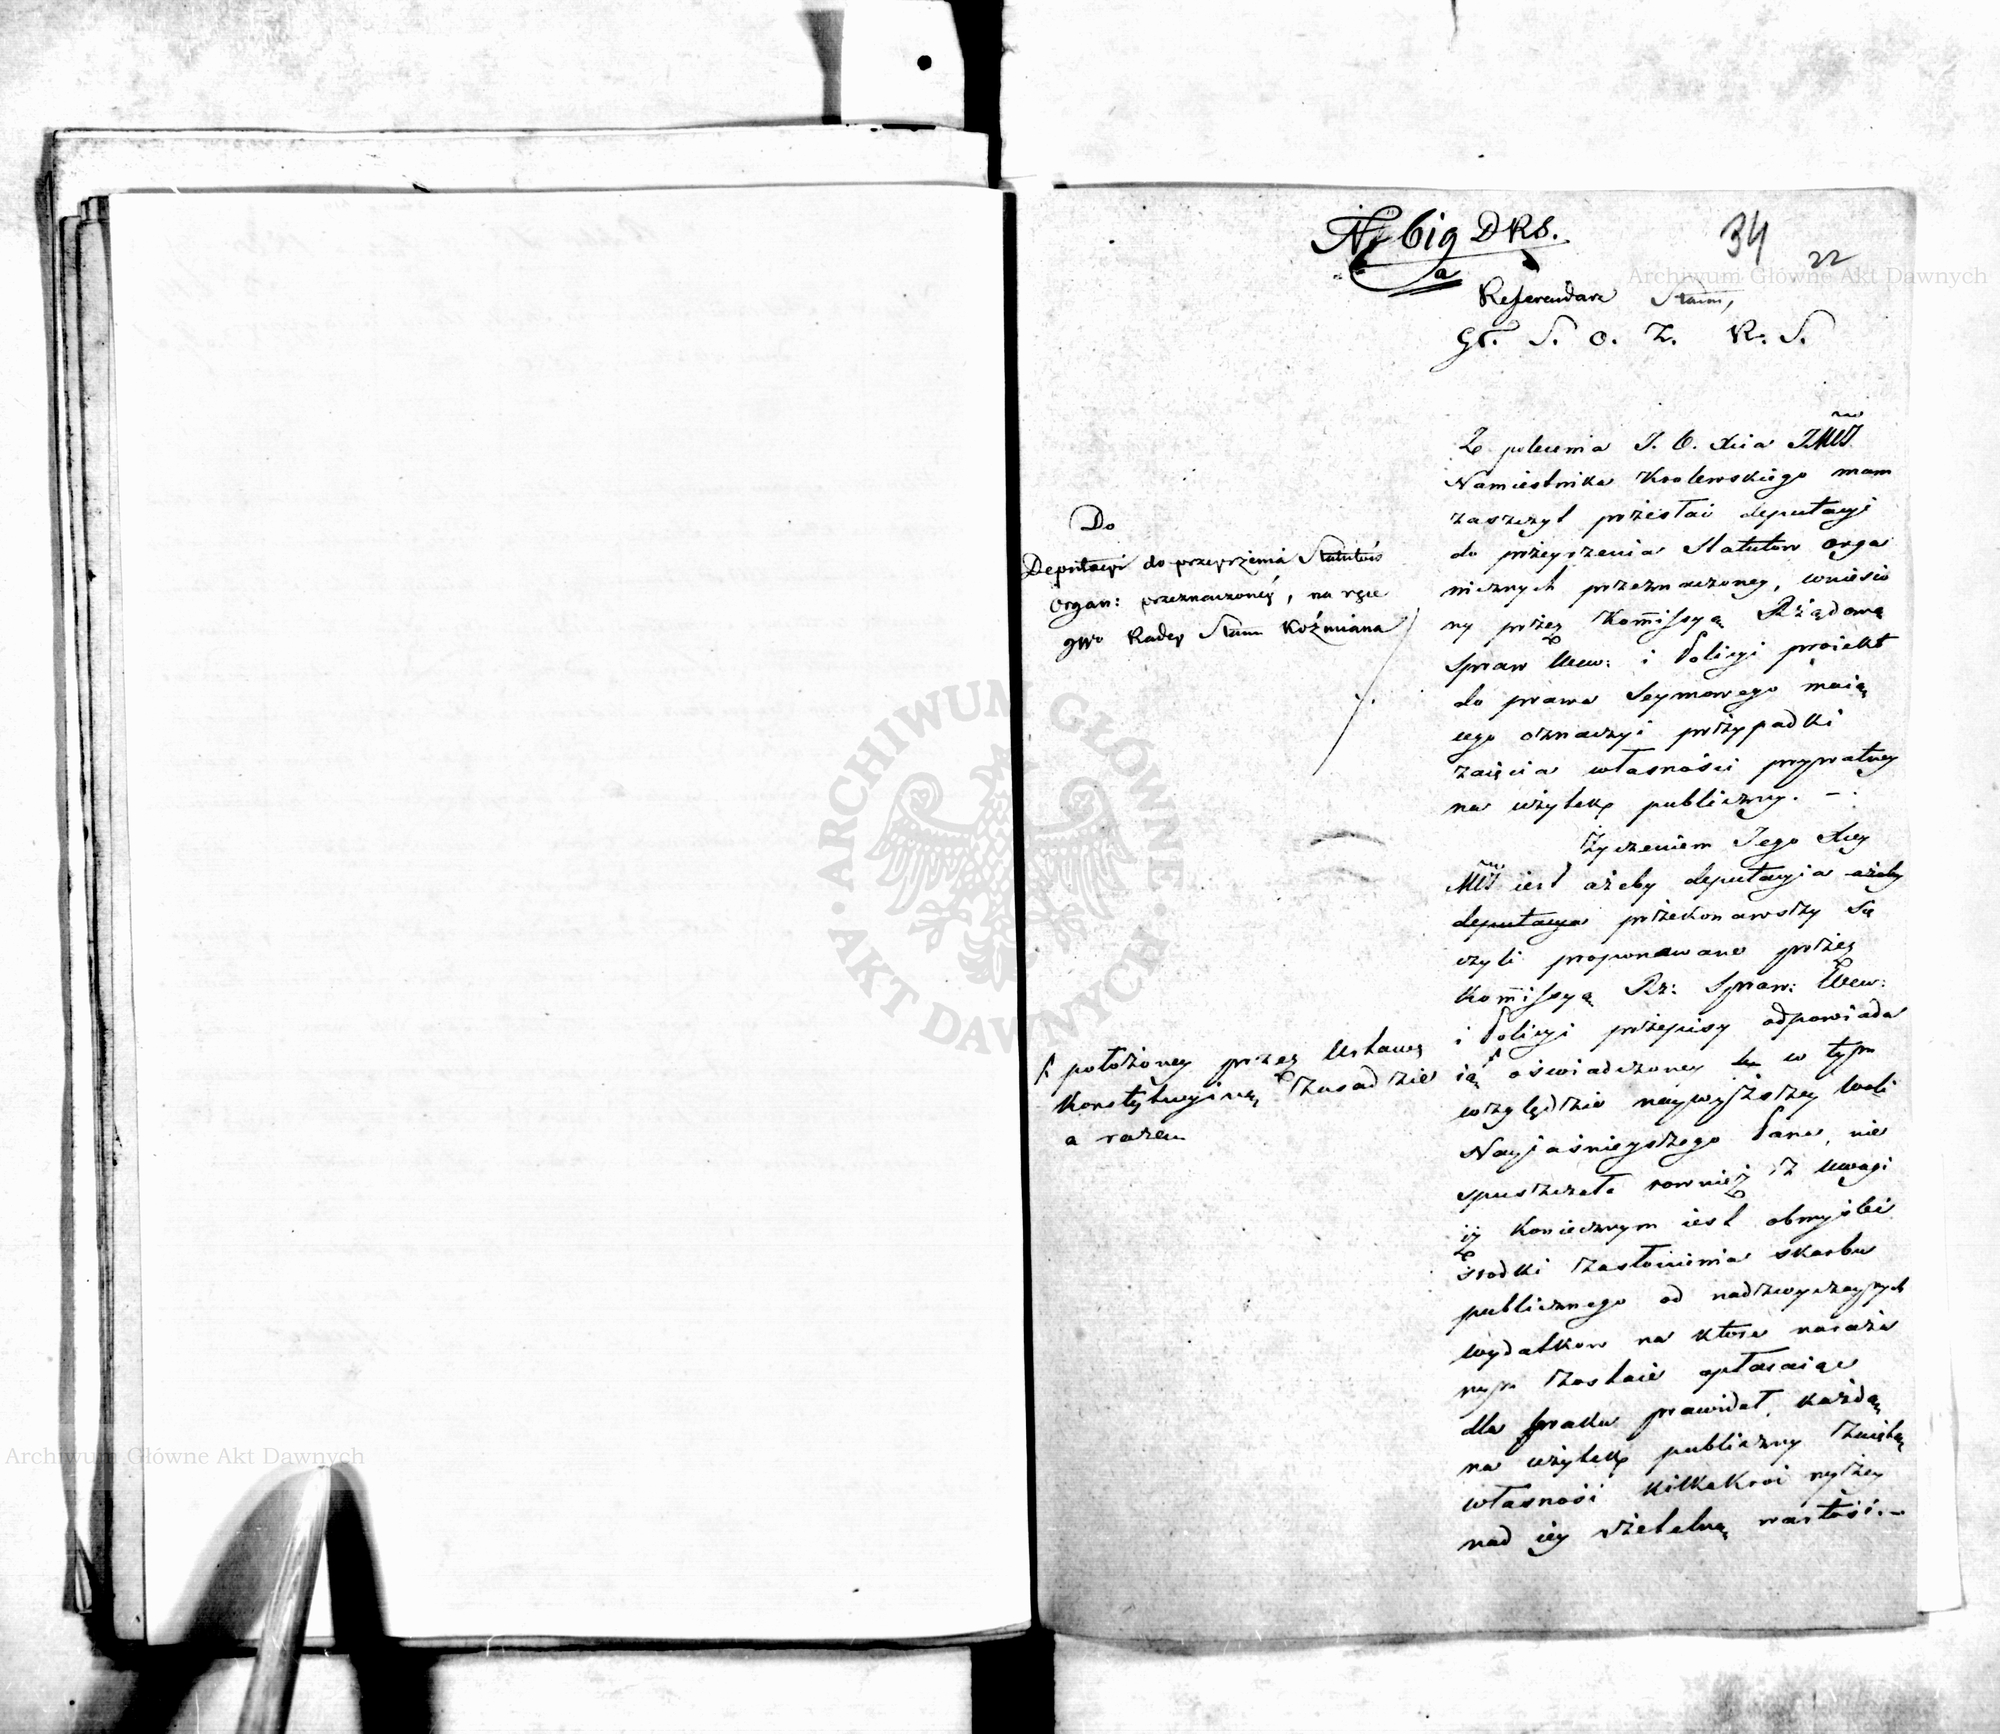 No 619 DRS.
a
34
22
Referendarz Stanu,
Gł. S. O. Z. R. S.
Do
Deputacyi do przeyrzenia Statutów
Organ: przeznaczoney, na ręce
JWo Radcy Stanu Koźmiana
Z polecenia J. O. Xcia JMCI
Namiestnika Krolewskiego mam
zaszczyt przesłać deputacyi
do przeyrzenia Statutow orga
nicznych przeznaczoney, wniesio
ny przez Kommissyą Rządową
Spraw Wew: i Policyi proiekt
do prawa Seymowego maią
cego oznaczyć przypadki
zaięcia własności prywatney
na użytek publiczny. —
Życzeniem Jego Xcey
Mci iest ażeby deputacyia ażeby
deputacya przekonawszy się
czyli proponowane przez
Kommissyą Rz: Spraw: Wew:
i Policyi przepisy odpowiada
ią oświadczoney w tym
względzie naywyższey woli
Nayiaśnieyszego Pana, nie
spuszczała rownież z uwagi
iż koniecznym iest obmyślić
środki zasłonienia skarbu
publicznego od nadzwyczaynych
wydatkow na które naraża
nym zostaie opłacaiąc
dla braku prawideł, każdą
na użytek publiczny zaiętą
własność kilkakroć wyżey
nad iey rzetelną wartość. —
położoney przez Ustawę
Konstytucyiną zasadzie
a razem
Archiwum Główne Akt Dawnych
ARCHIWUM GŁÓWNE · AKT DAWNYCH ·
Archiwum Główne Akt Dawnych